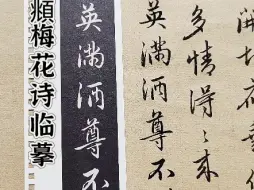 多情得〻来
英滿酒尊不
英滿酒尊不
頫梅花诗临摹